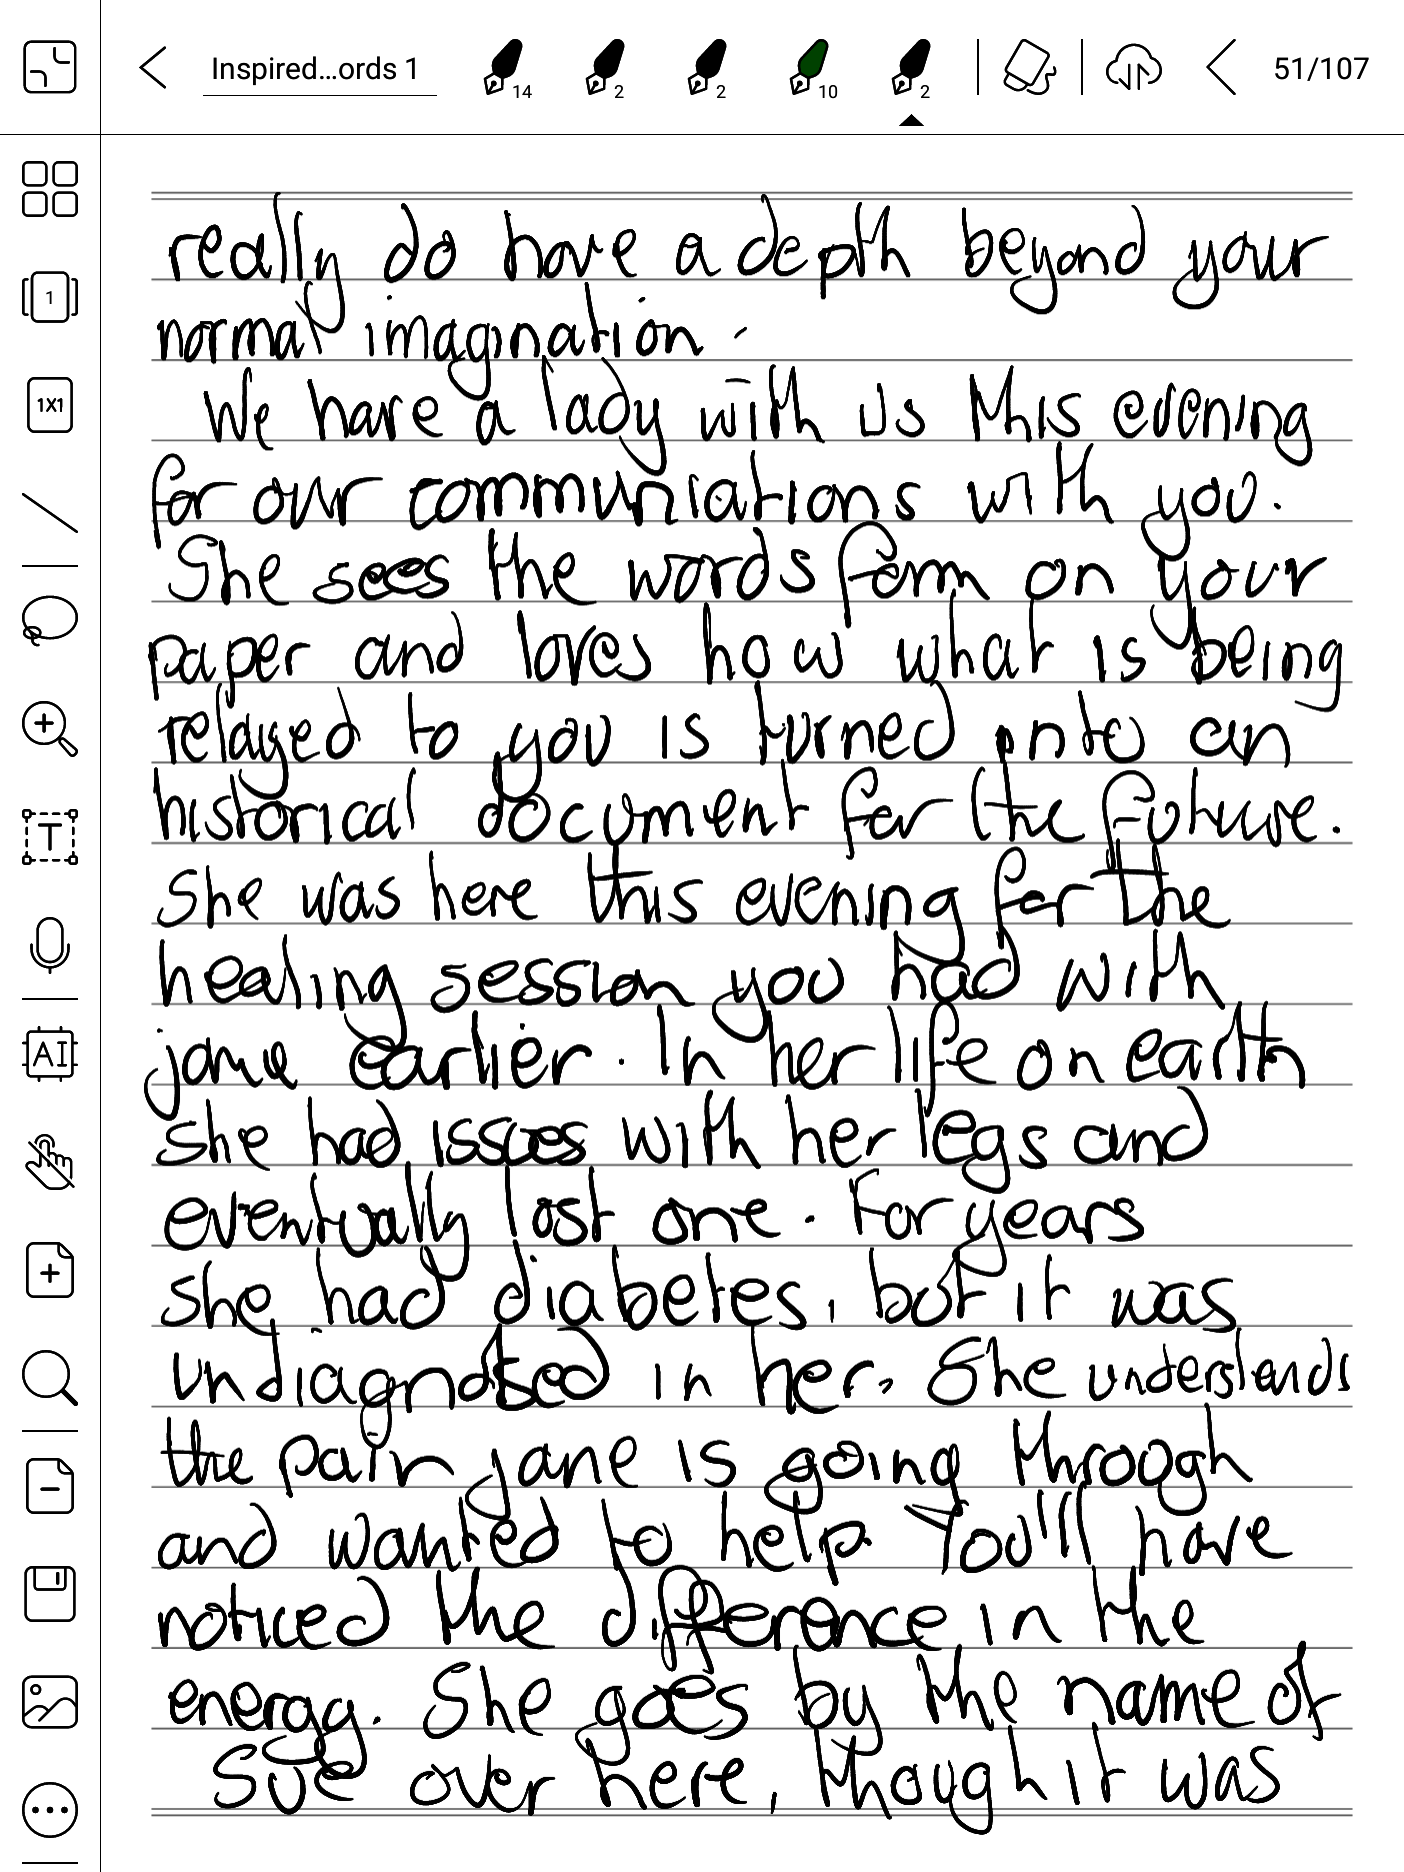 Inspired...ords 1
14
2
2
10
2
51/107
1
1X1
T
AI
really do have a depth beyond your
normal imagination.
We have a lady with us this evening
for our communiations with you.
She sees the words form on your
paper and loves how what is being
relayed to you is turned into an
historical document for the future.
She was here this evening for the
healing session you had with
jane earlier. In her life on earth
she had issues with her legs and
eventually lost one. For years
she had diabetes, but it was
undiagnosed in her. She understands
the pain jane is going through
and wanted to help. You'll have
noticed the difference in the
energy. She goes by the name of
Sue over here, though it was